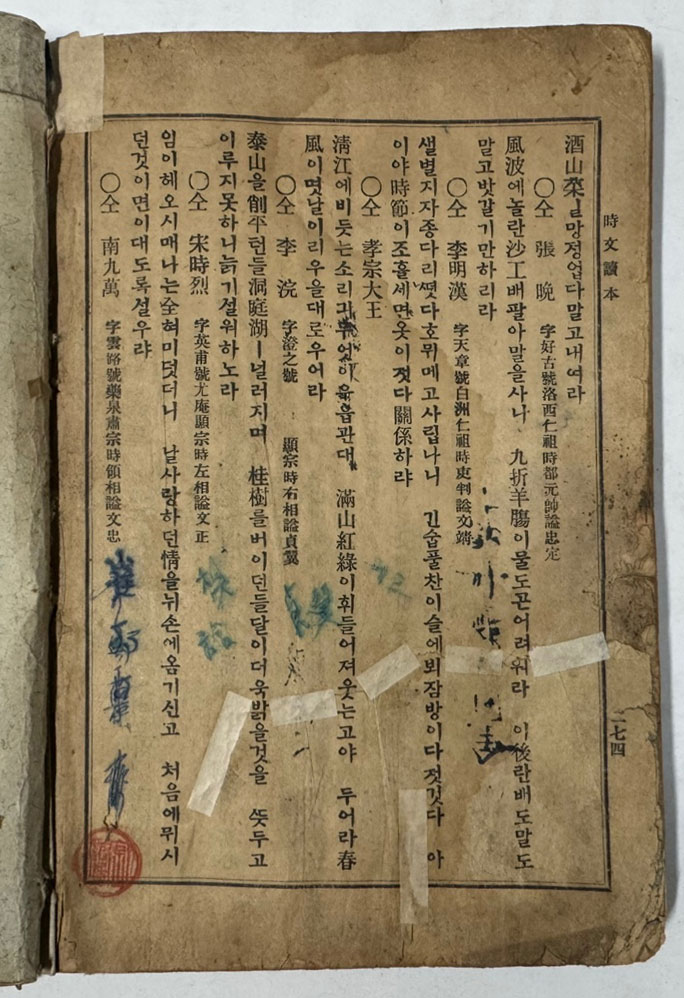 時文讀本
一七四
酒山菜ㅣㄹ망정업다말고내여라
○仝 張晩 字好古號洛西仁祖時都元帥諡忠定
風波에놀란沙工배팔아말을사니 九折羊膓이물도곤어려워라 이後란배도말도
말고밧갈기만하리라
○仝 李明漢 字天章號白洲仁祖時吏判諡文靖
샐별지자종다리ᄯᅥᆺ다호뮈메고사립나니 긴숩풀찬이슬에뵈잠방이다젓깃다 아
이야時節이조흘세면옷이젓다關係하랴
○仝 孝宗大王
淸江에비듯는소리긔무엇이 관대 滿山紅綠이휘들어져웃는고야 두어라春
風이몃날이리우을대로우어라
○仝 李浣 字澄之號 顯宗時右相諡貞翼
泰山을削平턴들洞庭湖ㅣ널러지며 桂樹를버이던들달이더욱밝을것을 ᄯᅳᆺ두고
이루지못하니늙기설워하노라
○仝 宋時烈 字英甫號尤庵顯宗時左相諡文正
임이헤오시매나는全혀미덧더니 날사랑하던情을뉘손에옴기신고 처음에뮈시
던것이면이대도록설우랴
○仝 南九萬 字雲路號藥泉肅宗時領相諡文忠